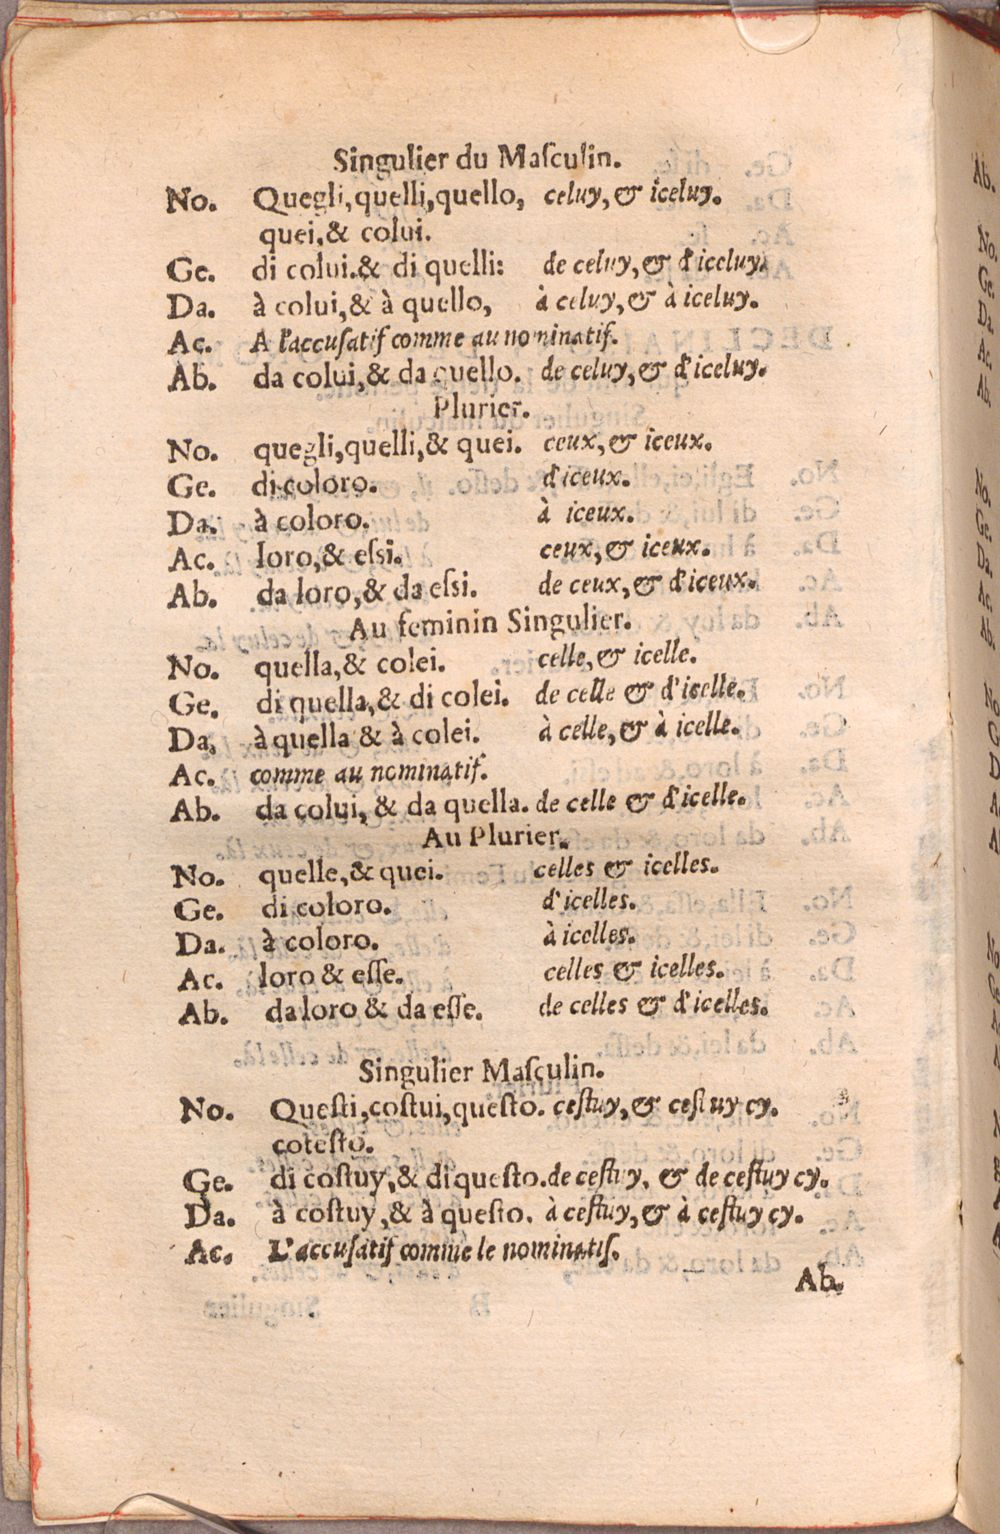 Singulier du Maſculin.
No. Quegli, quelli, quello, celuy, & iceluy.
quei, & colui.
Ge. di colui. & di quelli: de celuy, & d'iceluy.
Da. à colui, & à quello, à celuy, & à iceluy.
Ac. A l'accuſatif comme au nominatif.
Ab. da colui, & da quello. de celuy, & d'iceluy.
Plurier.
No. quegli, quelli, & quei. ceux, & iceux.
Ge. di coloro. d'iceux.
Da. à coloro. à iceux.
Ac. loro, & eſsi. ceux, & iceux.
Ab. da loro, & da eſsi. de ceux, & d'iceux.
Au feminin Singulier.
No. quella, & colei. celle, & icelle.
Ge. di quella, & di colei. de celle & d'icelle.
Da. à quella & à colei. à celle, & à icelle.
Ac. comme au nominatif.
Ab. da colui, & da quella. de celle & d'icelle.
Au Plurier.
No. quelle, & quei. celles & icelles.
Ge. di coloro. d'icelles.
Da. à coloro. à icelles.
Ac. loro & eſſe. celles & icelles.
Ab. da loro & da eſſe. de celles & d'icelles.
Singulier Maſculin.
No. Queſti, coſtui, queſto. ceſtuy, & ceſtuy cy.
coteſto.
Ge. di coſtuy, & di queſto. de ceſtuy, & de ceſtuy cy.
Da. à coſtuy, & à queſto. à ceſtuy, & à ceſtuy cy.
Ac. L'accuſatif comme le nominatif.
Ab.